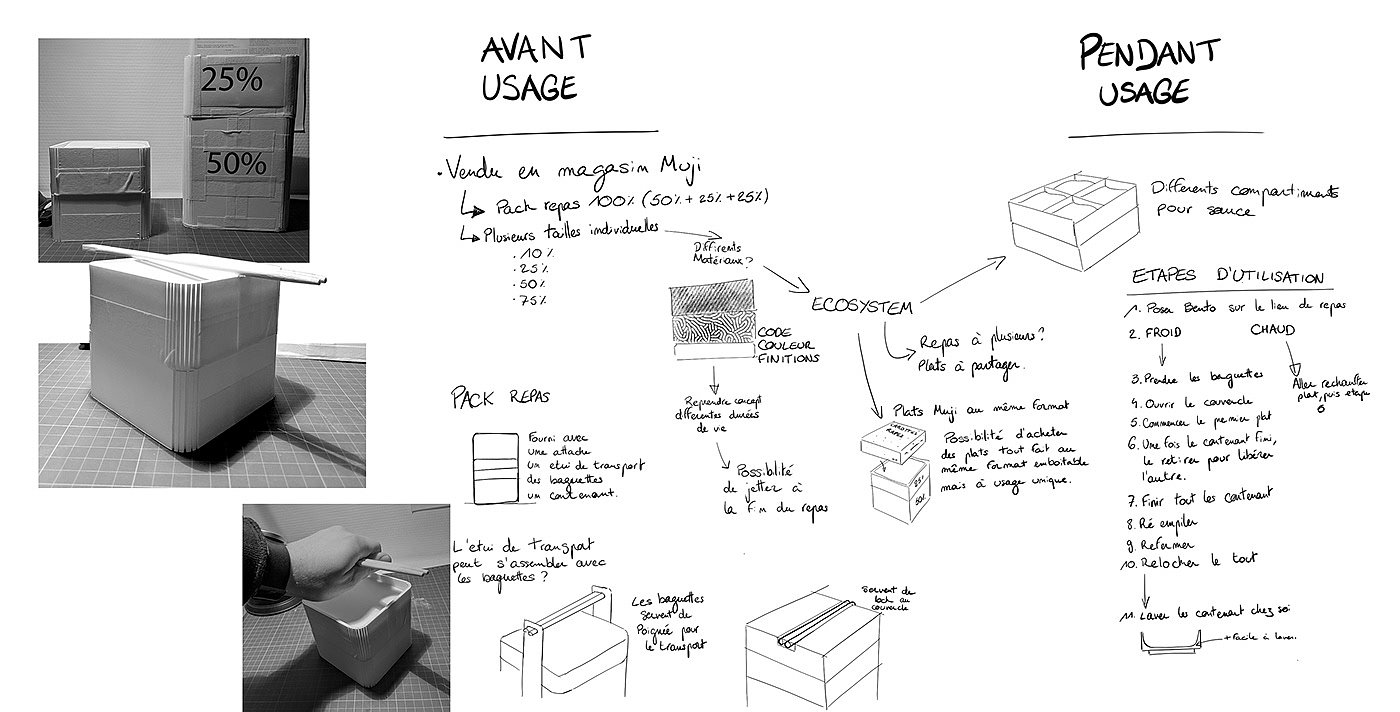 25%
50%
AVANT
USAGE
. Vendu en magasin Muji
Pack repas 100% (50% + 25% + 25%)
Plusieurs tailles individuelles
. 10%
. 25%
. 50%
. 75%
Différents
Matériaux?
CODE
COULEUR
FINITIONS
Reprendre concept
differentes durées
de vie
Possiblité
de jetter à
la fin du repas
ECOSYSTEM
Repas à plusieurs?
Plats à partager.
Plats Muji au même format
Possibilité d'acheter
des plats tout fait au
même format emboitable
mais à usage unique.
CAROTTES
RAPES
25%
50%
PACK REPAS
Fourni avec
une attache
un etui de transport
des baguettes
un contenant.
L'étui de transport
peut s'assembler avec
les baguettes?
Les baguettes
servent de
Poignée pour
le transport
servent de
lock au
couvercle
PENDANT
USAGE
Différents compartiments
pour sauce
ETAPES D'UTILISATION
1. Poser Bento sur le lieu de repas
2. FROID
CHAUD
3. Prendre les baguettes
4. Ouvrir le couvercle
5. Commencer le premier plat
6. Une fois le contenant fini,
le retirer pour libérer
l'autre.
7. Finir tout les contenant
8. Ré empiler
9. Refermer
10. Relocker le tout
11. Laver les contenant chez soi
+ facile à laver.
Aller rechauffer
plat, puis etape
6